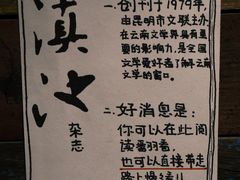 滇池
杂志
一. 创刊于1979年,
由昆明市文联主办
在云南文学界具有重
要的影响力,是全国
文学爱好者了解云南
文学的窗口。
二. 好消息是:
你可以在此阅
读翻看,
也可以直接带走
路上慢读儿